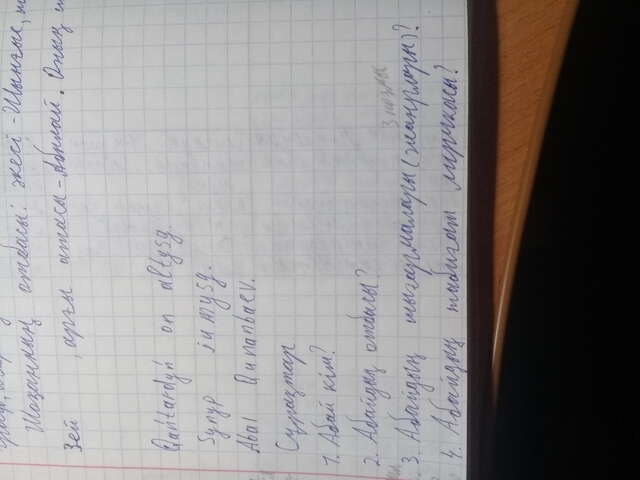 Шоқанның отбасы: әкесі - Шыңғыс,
Зей , арғы атасы - Абылай. Оның
Qańtardyń on altysy.
Synyp jumysy.
Abai Qunanbaev.
Сұрақтар
1. Абай кім?
2. Абайдың отбасы?
3 поэмы
3. Абайдың шығармалары (жанрлары)?
4. Абайдың табиғат лирикасы?